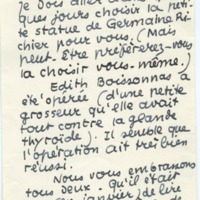 Je dois aller dans
ques jours choisir la peti-
te statue de Germaine Ri-
chier pour vous. (Mais
peut-être préférerez-vous
la choisir vous-même.)
Edith Boissonnas a
été opérée (d'une petite
grosseur qu'elle avait
tout contre la glande
thyroïde). Il semble que
l'opération ait très bien
réussi.
Nous vous embrassons
tous deux. Qu'il était
janvier) de lire